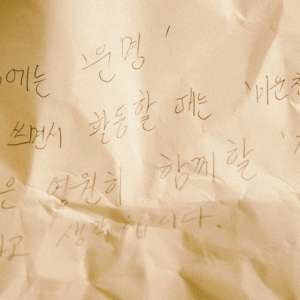 에는 '운명'
쓰면서 활동할 때는
은 영원히 함께할 '
고 생각합니다.